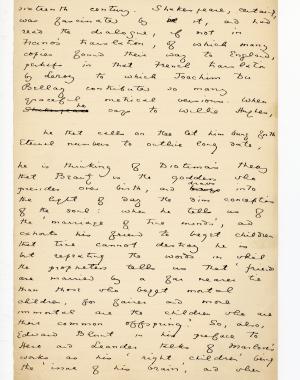 sixteenth century. Shakespeare, certainly,
was fascinated by it, and had
read the dialogue, if not in
Ficino's translation, of which many
copies found their way to England,
perhaps in that French translation
by Leroy to which Joachim Du
Bellay contributed so many
graceful metrical versions. When
he says to Willie Hughes,
he that calls on thee let him bring forth
Eternal numbers to outlive long date,
he is thinking of Diotima's theory
that Beauty is the goddess who
presides over birth, and draws into
the light of day the dim conceptions
of the soul: when he tells us of
the 'marriage of true minds', and
exhorts his friend to beget children
that time cannot destroy he is
but repeating the words in which
the prophetess tells us that 'friends
are married by a far nearer tie
than those who beget mortal
children, for fairer and more
immortal are the children who are
their common offspring'. So, also,
Edward Blount in his preface to
Hero and Leander talks of Marlowe's
works as his 'right children' being
the 'issue of his brain', and when